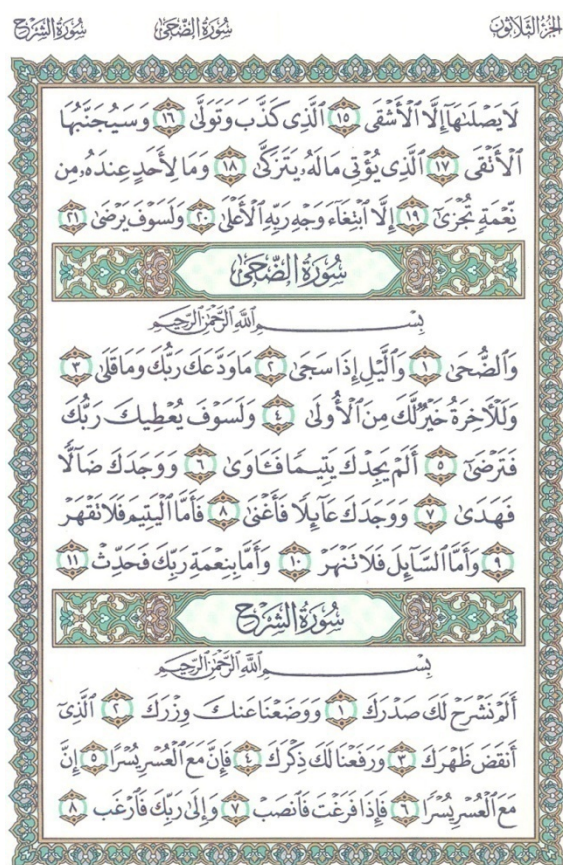 الجزء الثلاثون سورة الضحى سورة الشرح
لَا يَصْلَىٰهَآ إِلَّا ٱلْأَشْقَى ١٥ ٱلَّذِى كَذَّبَ وَتَوَلَّىٰ ١٦ وَسَيُجَنَّبُهَا
ٱلْأَتْقَى ١٧ ٱلَّذِى يُؤْتِى مَالَهُۥ يَتَزَكَّىٰ ١٨ وَمَا لِأَحَدٍ عِندَهُۥ مِن
نِّعْمَةٍ تُجْزَىٰٓ ١٩ إِلَّا ٱبْتِغَآءَ وَجْهِ رَبِّهِ ٱلْأَعْلَىٰ ٢٠ وَلَسَوْفَ يَرْضَىٰ ٢١
سُورَةُ الضُّحَىٰ
بِسْمِ ٱللَّهِ ٱلرَّحْمَٰنِ ٱلرَّحِيمِ
وَٱلضُّحَىٰ ١ وَٱلَّيْلِ إِذَا سَجَىٰ ٢ مَا وَدَّعَكَ رَبُّكَ وَمَا قَلَىٰ ٣
وَلَلْءَاخِرَةُ خَيْرٌ لَّكَ مِنَ ٱلْأُولَىٰ ٤ وَلَسَوْفَ يُعْطِيكَ رَبُّكَ
فَتَرْضَىٰٓ ٥ أَلَمْ يَجِدْكَ يَتِيمًا فَـَٔاوَىٰ ٦ وَوَجَدَكَ ضَآلًّا
فَهَدَىٰ ٧ وَوَجَدَكَ عَآئِلًا فَأَغْنَىٰ ٨ فَأَمَّا ٱلْيَتِيمَ فَلَا تَقْهَرْ
٩ وَأَمَّا ٱلسَّآئِلَ فَلَا تَنْهَرْ ١٠ وَأَمَّا بِنِعْمَةِ رَبِّكَ فَحَدِّثْ ١١
سُورَةُ الشَّرْحِ
بِسْمِ ٱللَّهِ ٱلرَّحْمَٰنِ ٱلرَّحِيمِ
أَلَمْ نَشْرَحْ لَكَ صَدْرَكَ ١ وَوَضَعْنَا عَنكَ وِزْرَكَ ٢ ٱلَّذِىٓ
أَنقَضَ ظَهْرَكَ ٣ وَرَفَعْنَا لَكَ ذِكْرَكَ ٤ فَإِنَّ مَعَ ٱلْعُسْرِ يُسْرًا ٥ إِنَّ
مَعَ ٱلْعُسْرِ يُسْرًا ٦ فَإِذَا فَرَغْتَ فَٱنصَبْ ٧ وَإِلَىٰ رَبِّكَ فَٱرْغَب ٨